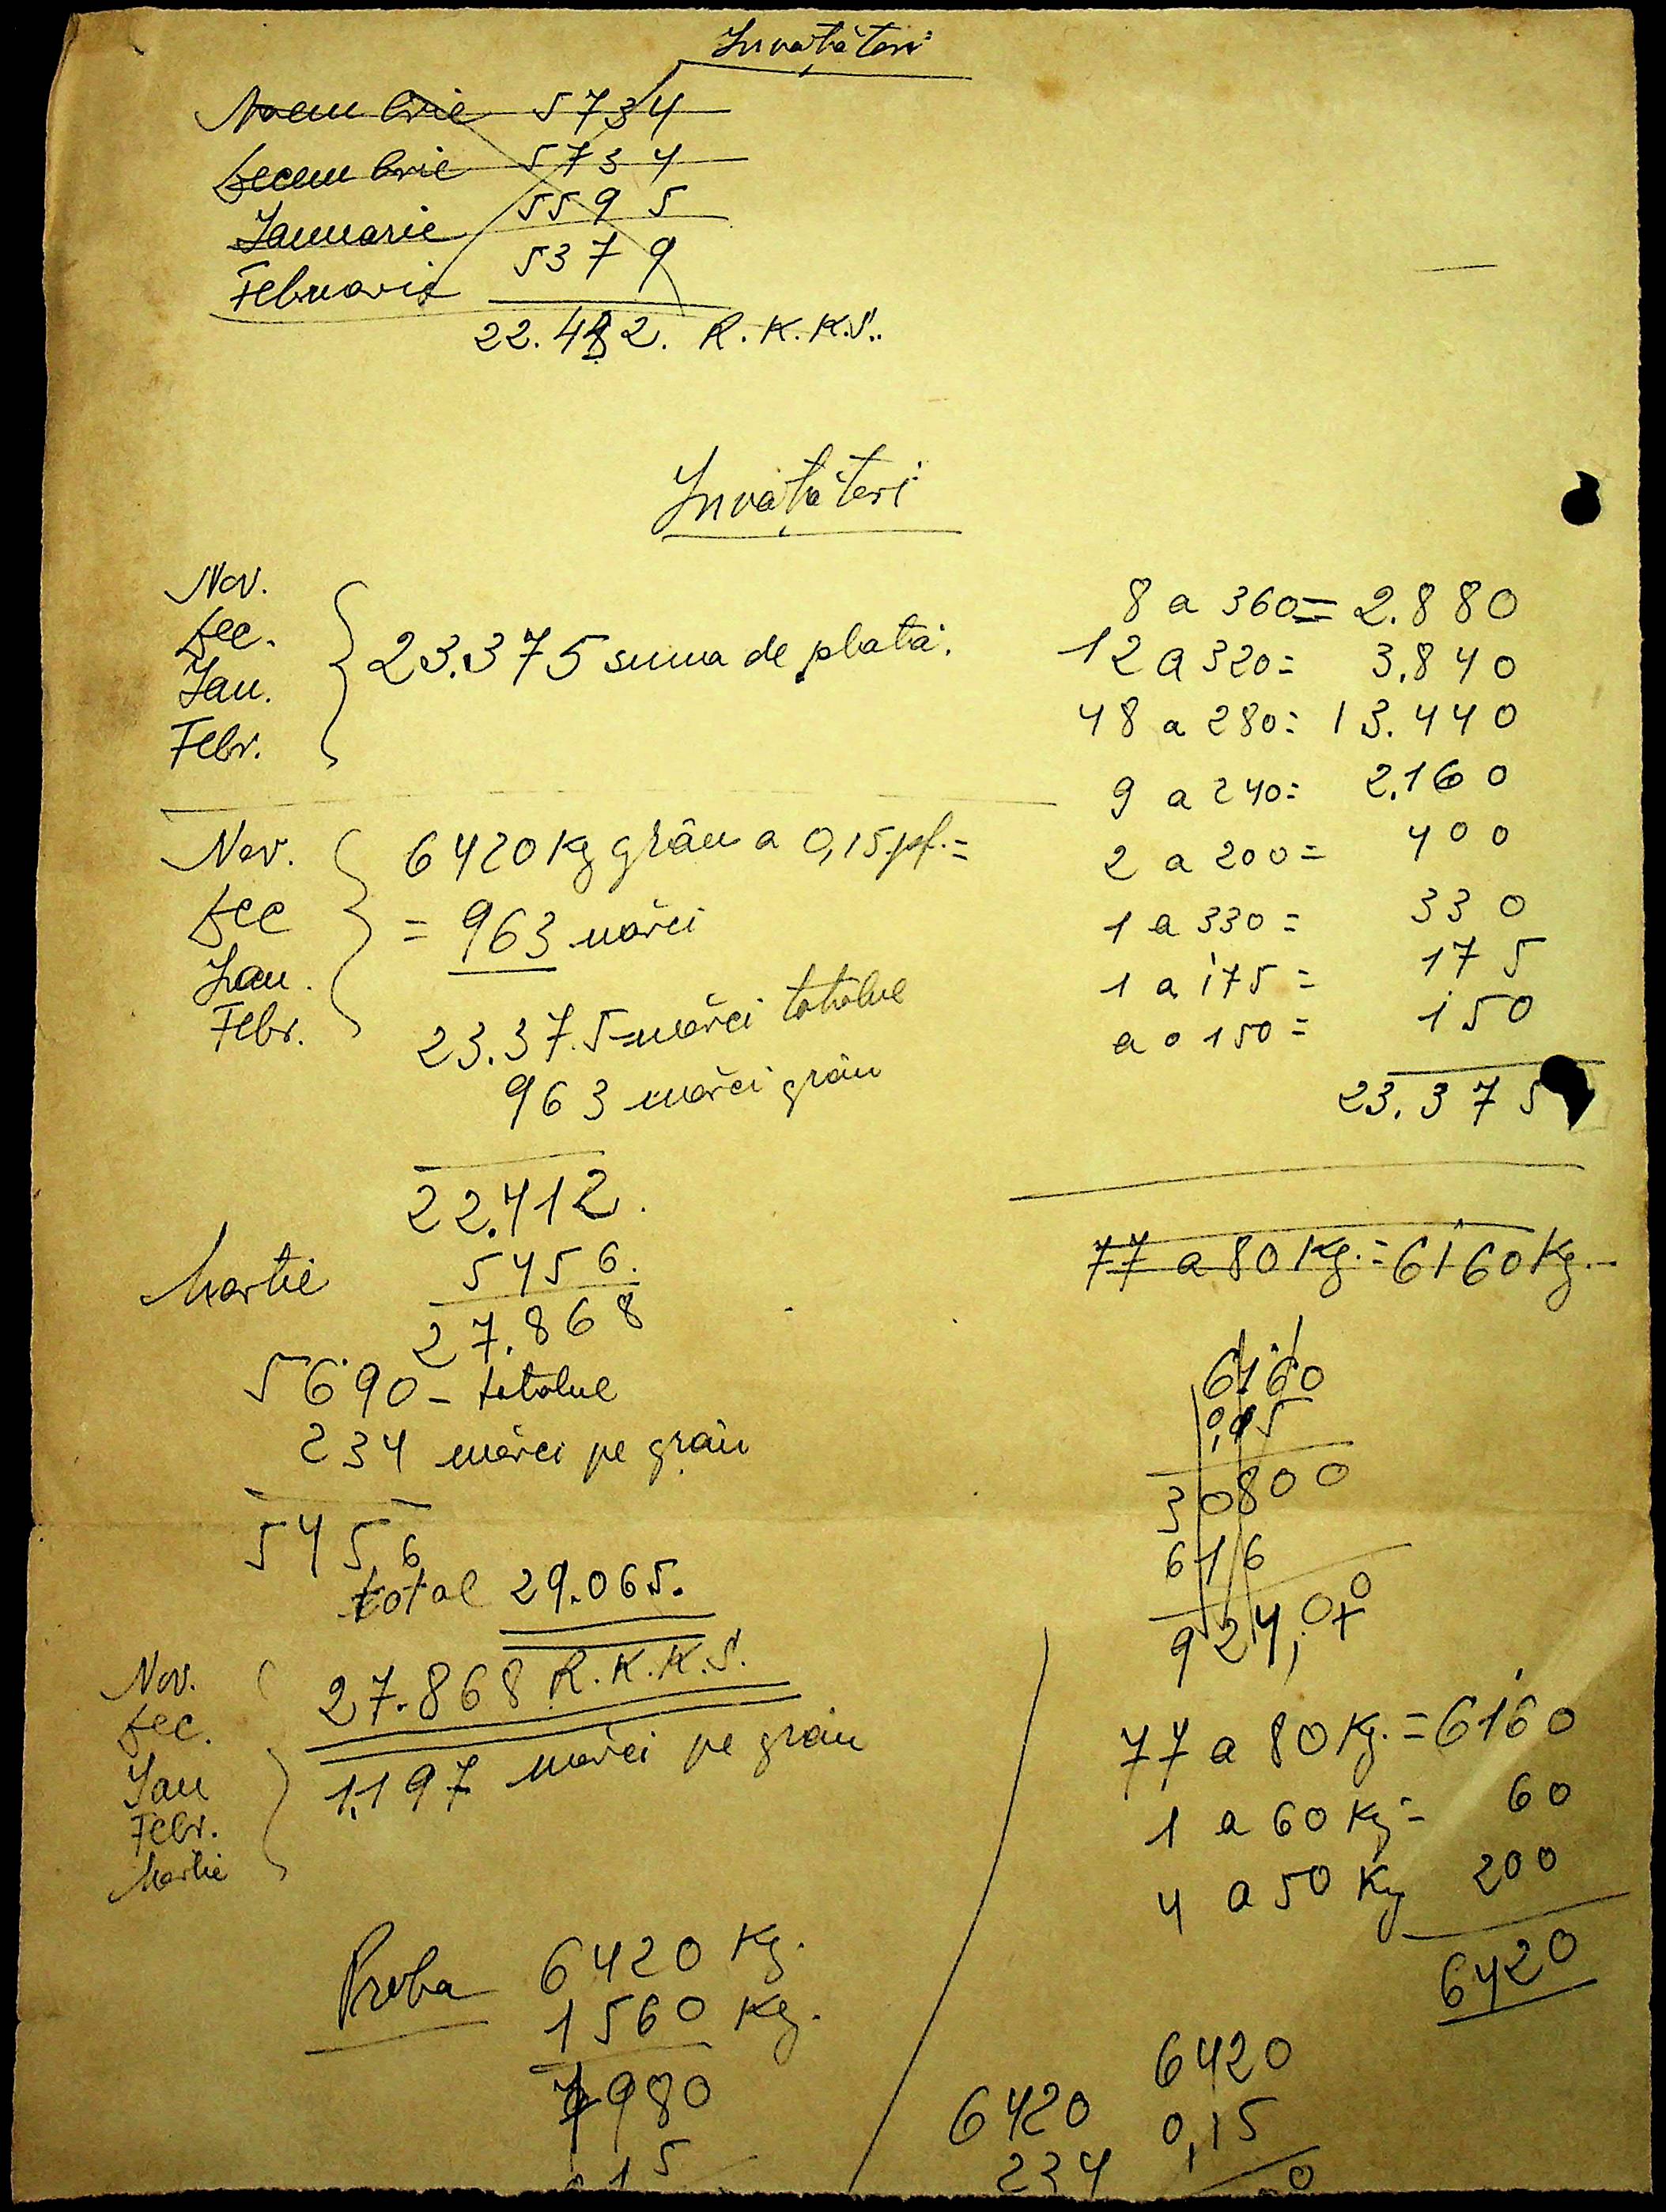 Învățători
Noembrie 5734
Decembrie 5734
Ianuarie 5595
Februarie 5379
22.442. R.K.K.S.
Învățători
Nov.
Dec.
Ian.
Febr.
23.375 suma de plată.
Nov.
Dec
Ian.
Febr.
6420 Kg grâu a 0,15 pf. =
= 963 mărci
23.375 mărci totalul
963 mărci grâu
22.412.
Martie 5456.
27.868
5690 - totalul
234 mărci pe grâu
5456
total 29.065.
Nov.
Dec.
Ian
Febr.
Martie
27.868 R.K.K.S.
1.197 mărci pe grâu
Proba 6420 Kg.
1560 Kg.
7980
015
8 a 360 = 2.880
12 a 320 = 3.840
48 a 280 = 13.440
9 a 240 = 2.160
2 a 200 = 400
1 a 330 = 330
1 a 175 = 175
a 150 = 150
23.375
77 a 80 Kg. = 6160 Kg.
6160
0,15
30800
616
924,00
77 a 80 Kg. = 6160
1 a 60 Kg = 60
4 a 50 Kg 200
6420
6420
0,15
6420
234